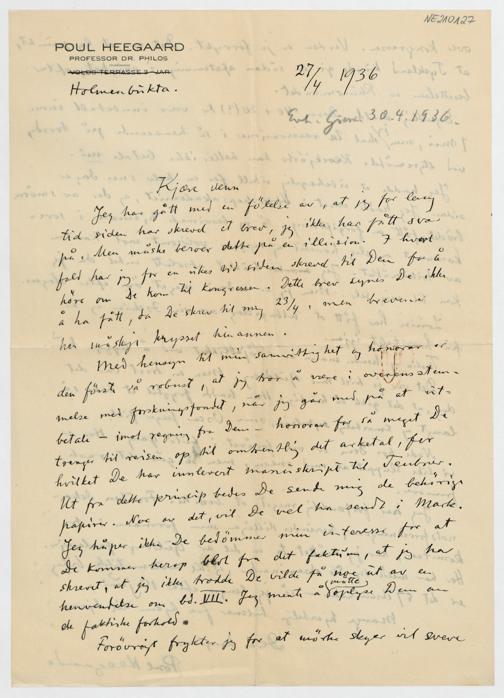 NE210127
POUL HEEGAARD
PROFESSOR DR. PHILOS
VOLDS TERRASSE 3 JAR
Holmenbukta.
27/4 1936
30.4.1936.
Kjære venn
Jeg har gått med en følelse av, at jeg for lang
tid siden har skrevd et brev, jeg ikke har fått svar
på. Men måske beroer dette på en illusion. I hvert
fald har jeg for en ukes tid siden skrevd til Dem for å
høre om De kom til kongressen. Dette brev synes De ikke
å ha fått, da De skrev til mig 23/4, men brevene
har måskje krysset hinannen.
Med hensyn til min samvittighet og honorar er
den første så robust, at jeg tror å være i overensstem-
melse med forskningsfondet, når jeg går med på at ut-
betale – imot regning fra Dem – honorar for så meget De
trenger til reisen op til omtrentlig det arketal, for
hvilket De har innlevert manuskript til Teubner.
Ut fra dette princip bedes De sende mig de behørige
papirer. Noe av det, vil De vel ha sendt i Mark.
Jeg håper ikke De bedømmer min interesse for at
De kommer herop blot fra det faktum, at jeg har
skrevet, at jeg ikke trodde De vilde få noe ut av en
henvendelse om bd. VII. Jeg mente å måtte oplyse Dem om
de faktiske forhold.
Forøvrigt frykter jeg for at mørke skyer vil sveve